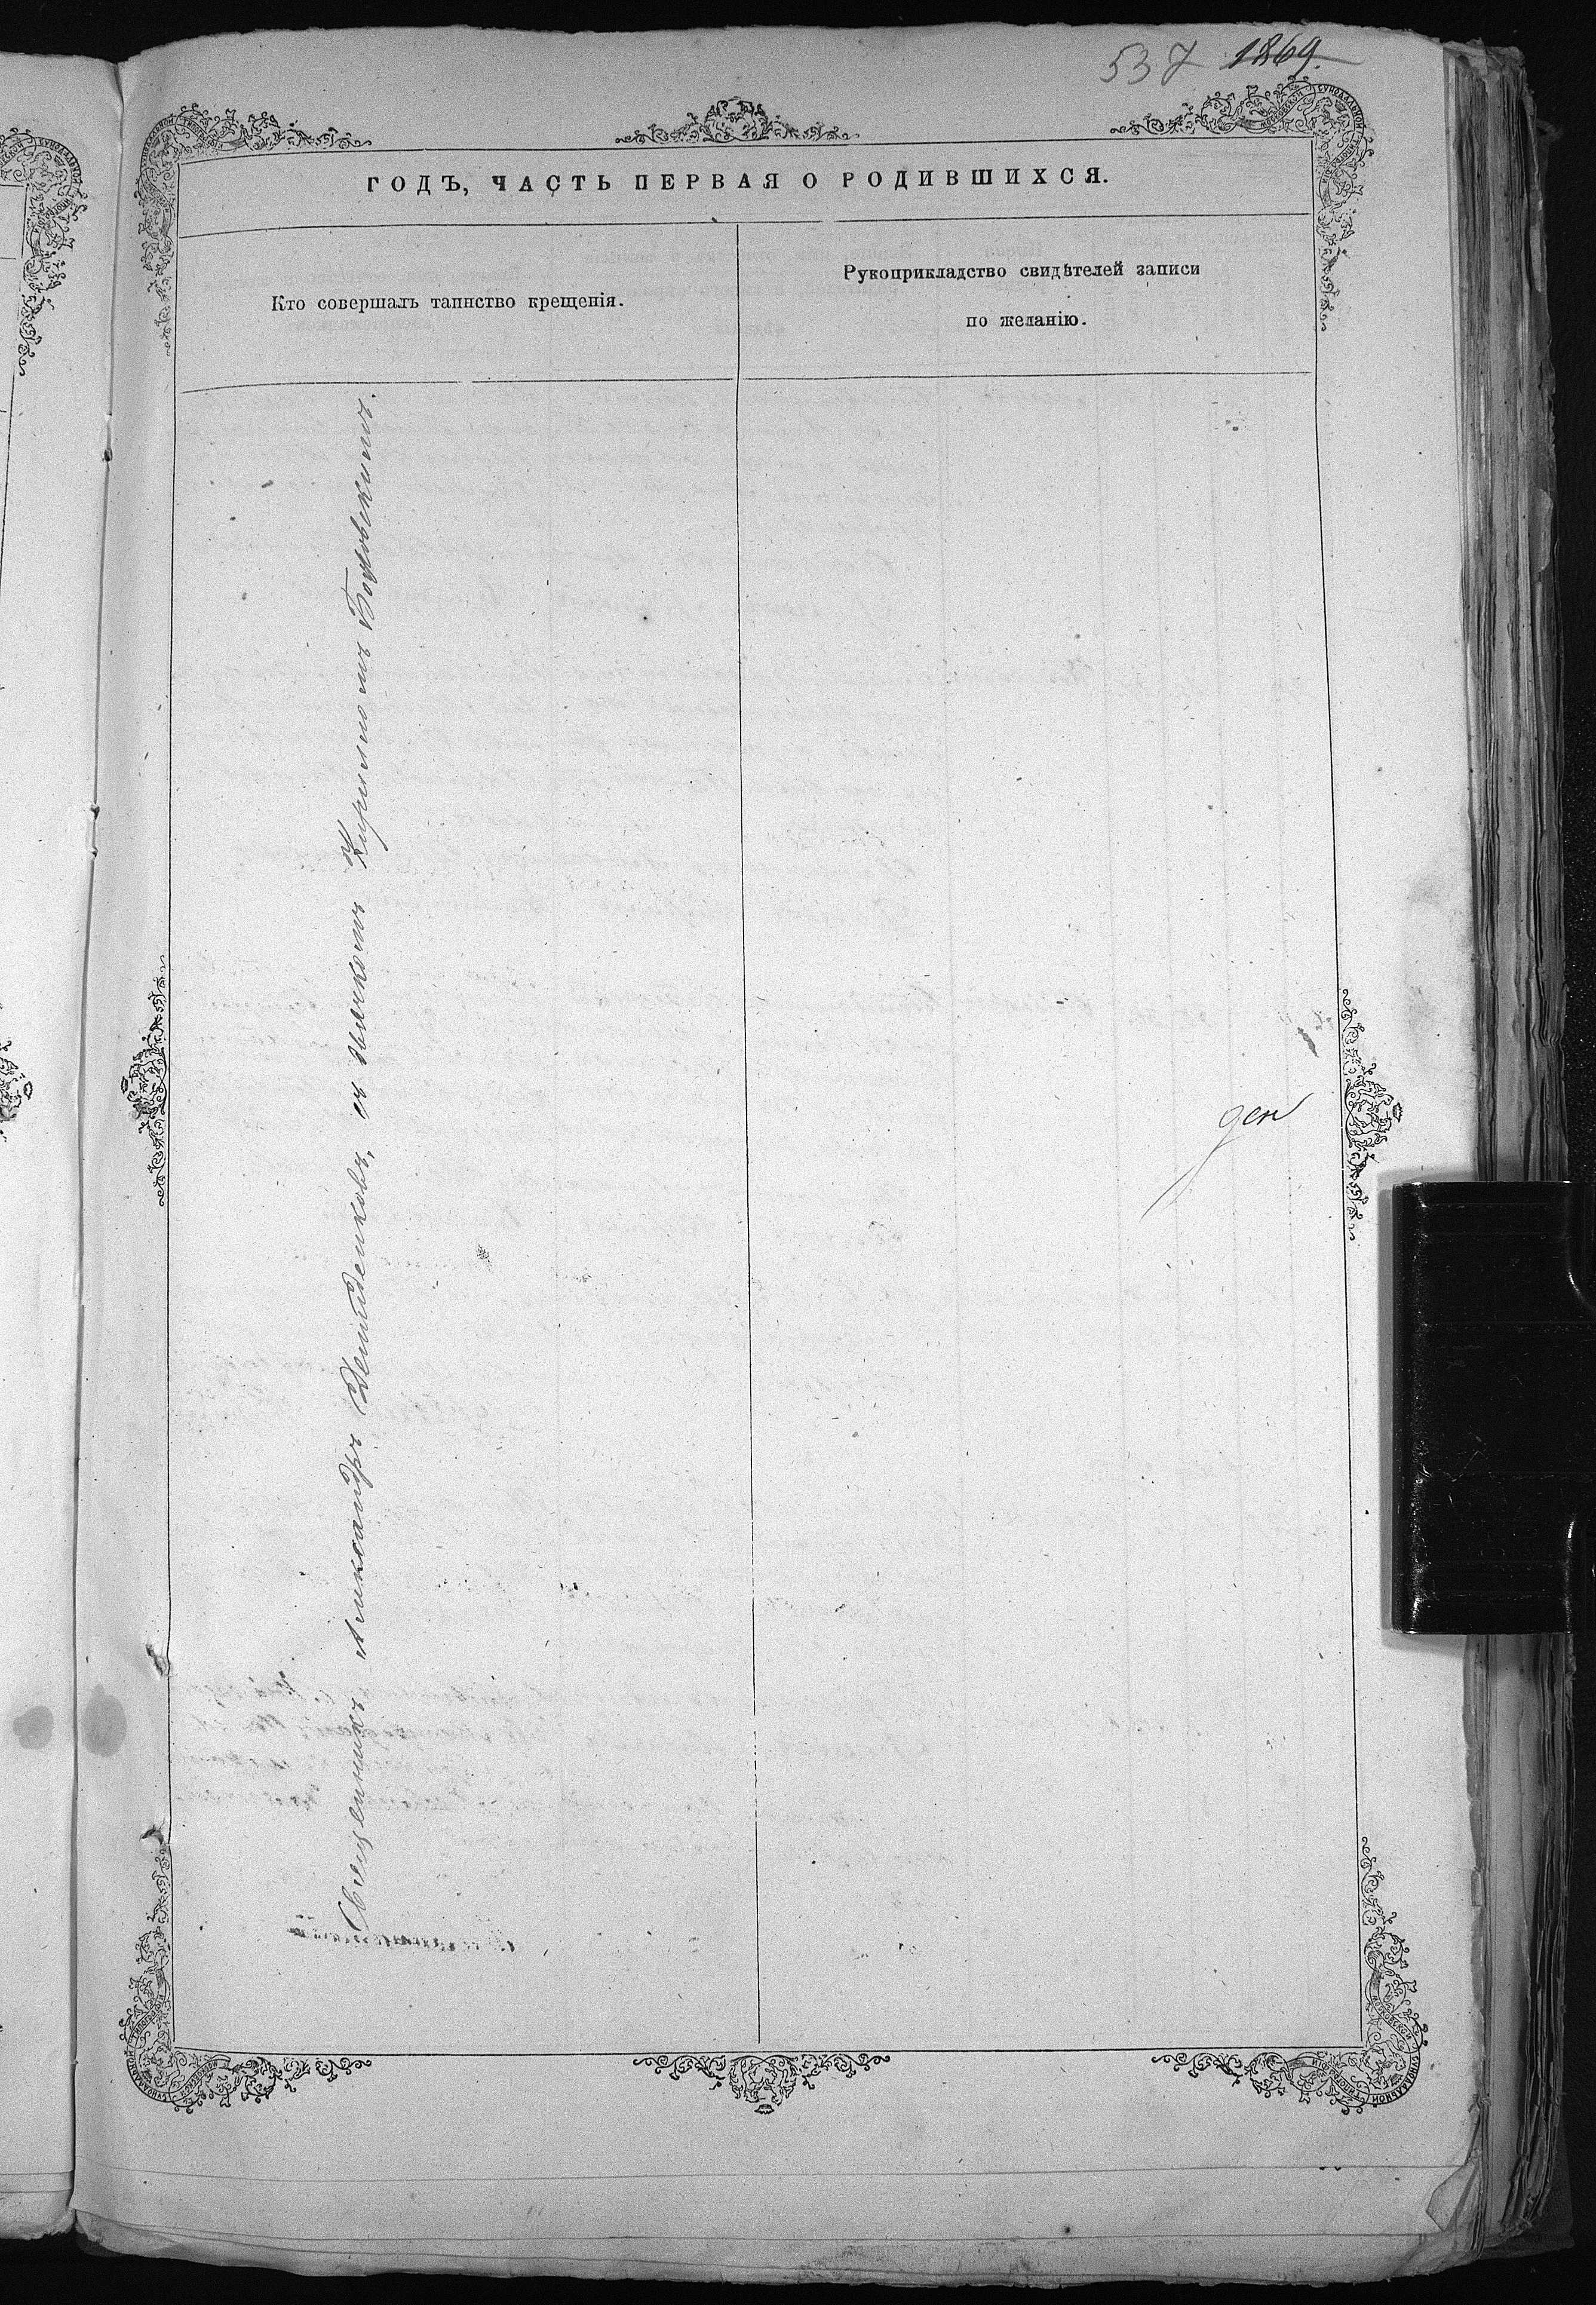 537 1869.
ГОДЪ, ЧАСТЬ ПЕРВАЯ О РОДИВШИХСЯ.
Кто совершалъ таинство крещенія.
Рукоприкладство свидѣтелей записи
по желанію.
Священникъ Александръ Демиденковъ, съ дьячкомъ Кириломъ Боровскимъ.